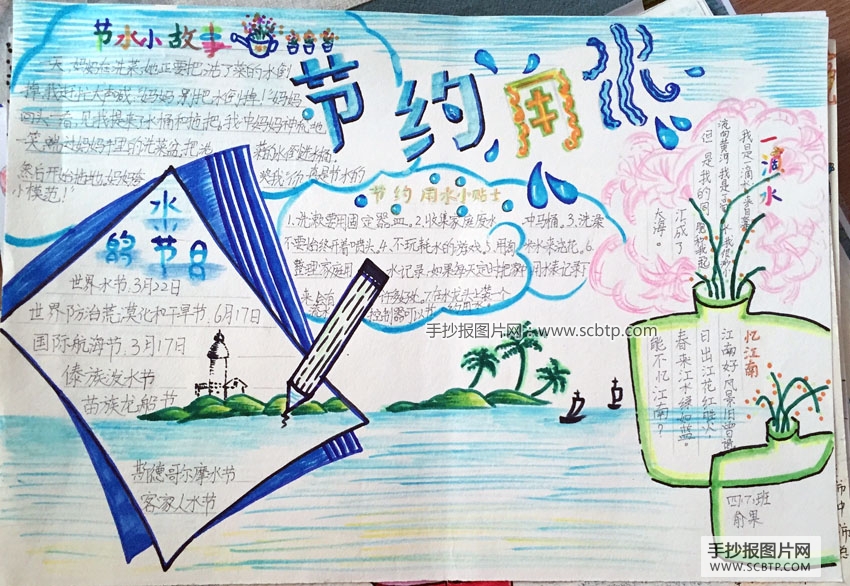 节约用水
节水小故事
一天,妈妈在洗菜,她正要把洗了菜的水倒
掉,我赶忙大声喊:"妈妈,别把水倒掉!"妈妈
回头一看,见我提来了水桶和拖把,我冲妈妈神秘地
一笑,端过妈妈手里的洗菜盆,把洗菜的水倒进桶,
然后开始拖地,妈妈
小模范!"
节约用水小贴士
1.洗漱要用固定器皿。2.收集家庭废水冲马桶。3.洗澡
不要始终开着喷头。4.不玩耗水的游戏。5.用 水来浇花。6.
整理家庭用水记录,如果每天定时把 用水表记录下
水的节日
世界水节.3月22日
世界防治荒漠化和干旱节.6月17日
国际航海节.3月17日
傣族泼水节
苗族龙船节
斯德哥尔摩水节
客家人水节
一滴水
我是一滴水,来自
流向黄河,我是
但是我的
汇成了
大海。
忆江南
江南好,风景旧曾谙。
日出江花红胜火,
春来江水绿如蓝。
能不忆江南?
四.7.班
俞果
手抄报图片网:www.scbtp.com
手抄报图片网
WWW.SCBTP.COM